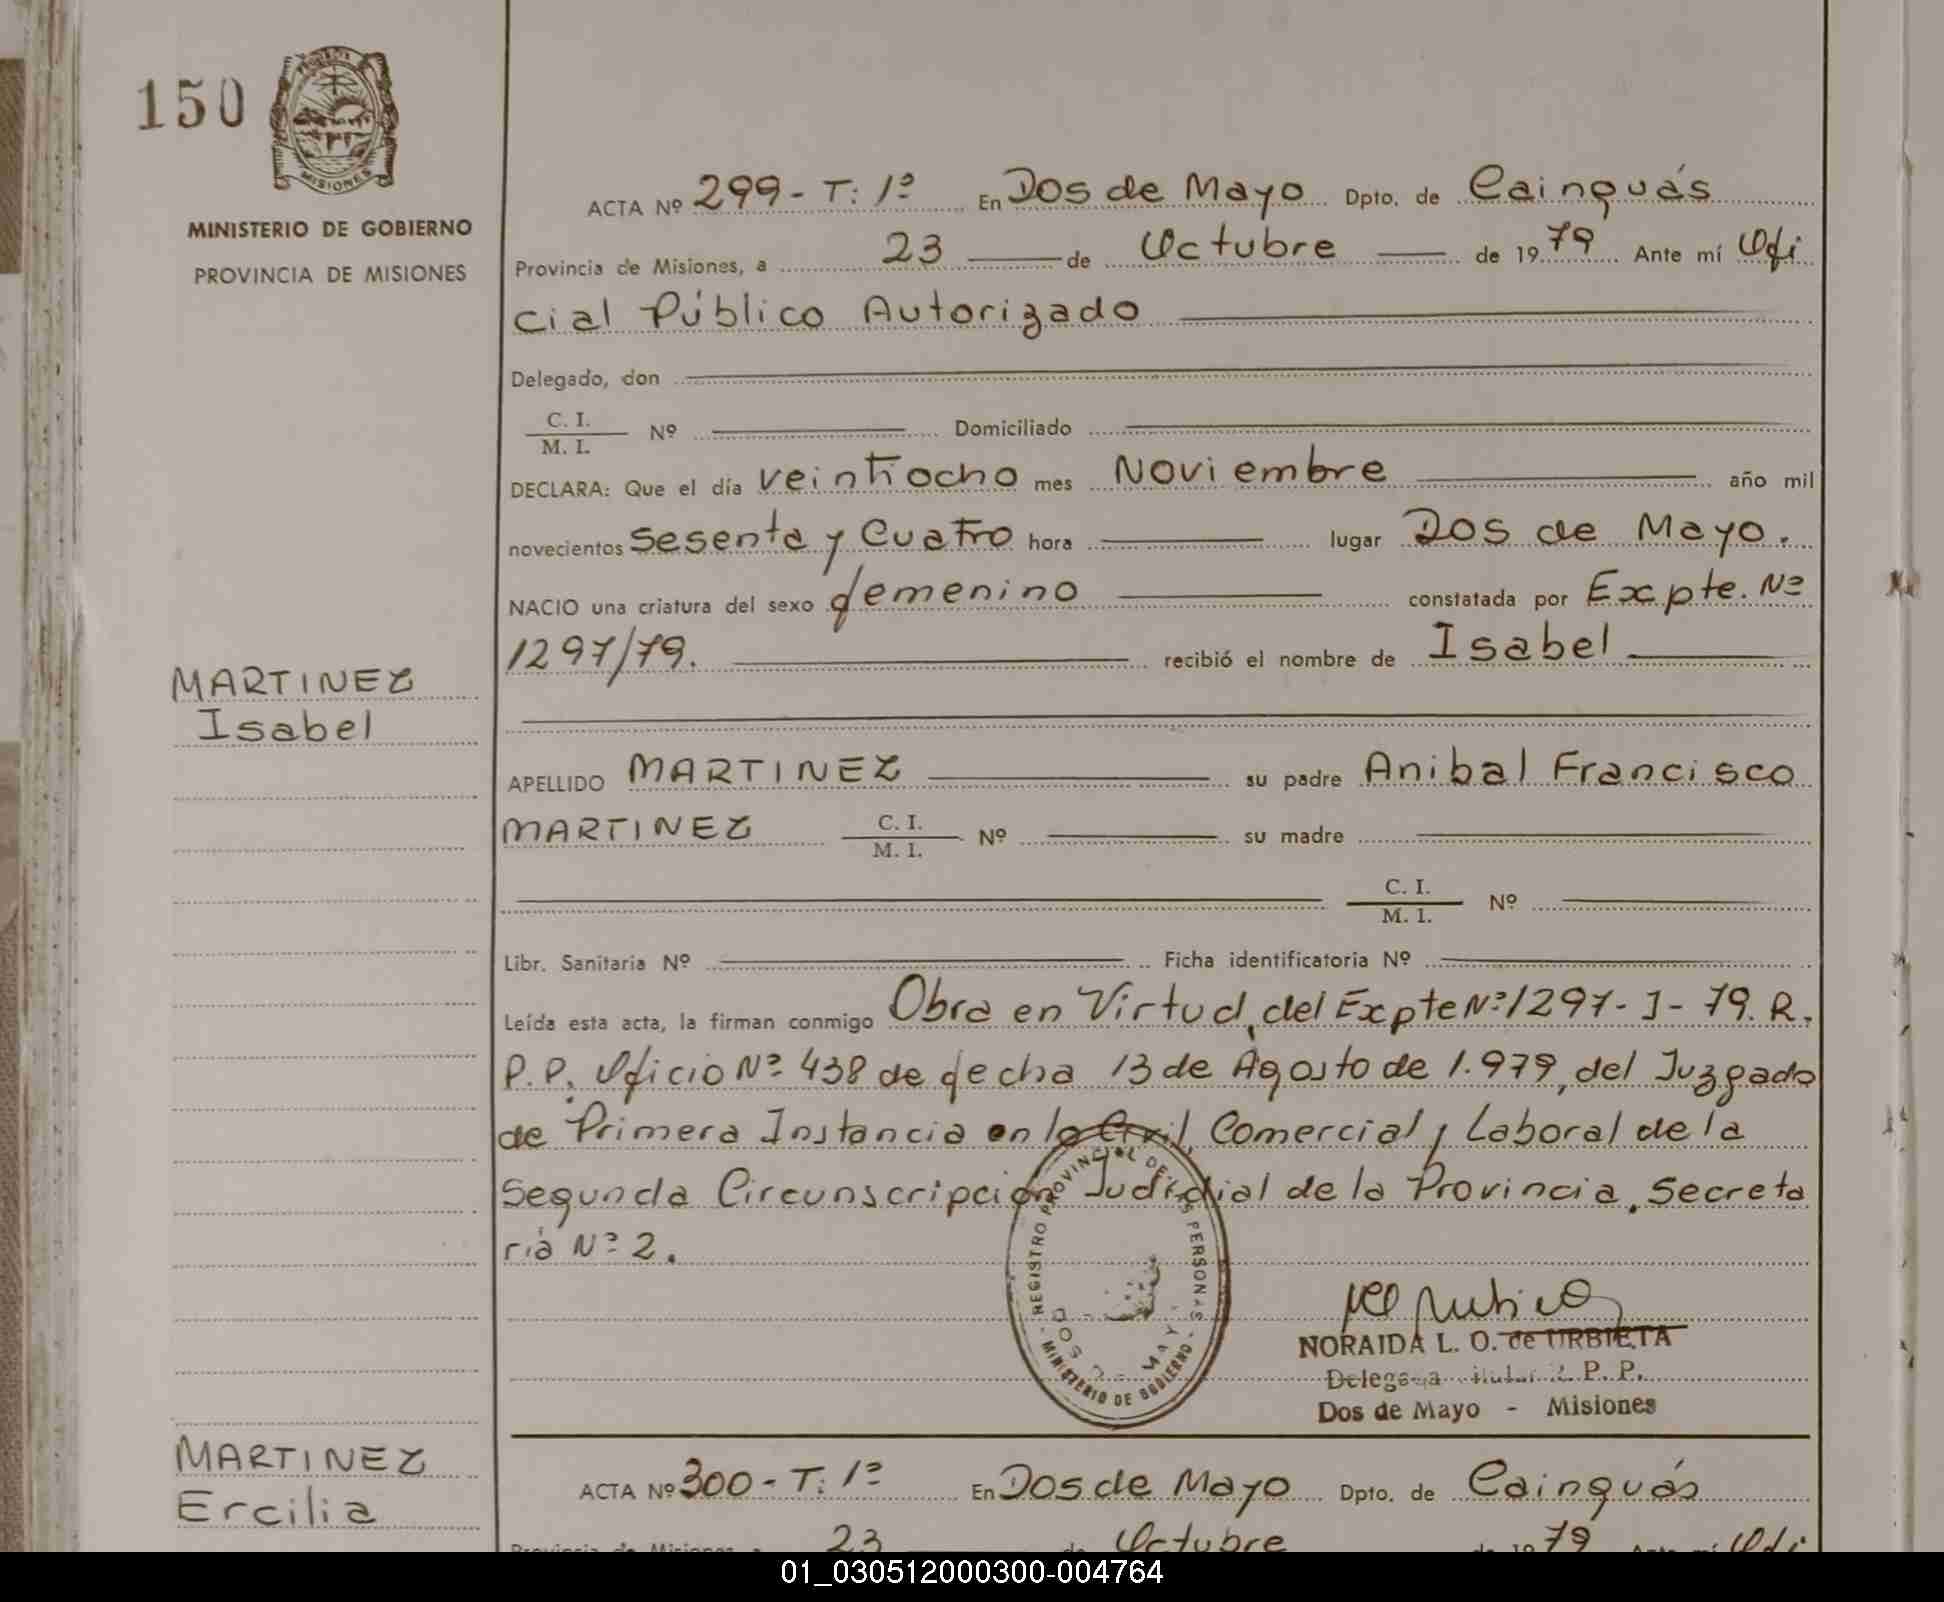 150
MISIONES
MINISTERIO DE GOBIERNO
PROVINCIA DE MISIONES
ACTA Nº 299 - T: 1º En Dos de Mayo Dpto. de Cainguás
Provincia de Misiones, a 23 de Octubre de 1979 Ante mí Ofi
cial Público Autorizado
Delegado, don
C. I.
M. I. Nº Domiciliado
DECLARA: Que el día veintiocho mes Noviembre año mil
novecientos sesenta y Cuatro hora lugar Dos de Mayo.
NACIO una criatura del sexo femenino constatada por Expte. Nº
1297/79. recibió el nombre de Isabel
MARTINEZ
Isabel
APELLIDO MARTINEZ su padre Anibal Francisco
MARTINEZ C. I. M. I. Nº su madre
C. I.
M. I. Nº
Libr. Sanitaria Nº Ficha identificatoria Nº
Leída esta acta, la firman conmigo Obra en Virtud, del Expte Nº 1297-J-79. R.
P.P. Oficio Nº 438 de fecha 13 de Agosto de 1.979, del Juzgado
de Primera Instancia en lo Civil, Comercial y Laboral de la
Segunda Circunscripción Judicial de la Provincia, Secreta
ría Nº 2.
REGISTRO PROVINCIAL DE LAS PERSONAS
MINISTERIO DE GOBIERNO
DOS DE MAYO
NORAIDA L. O. de URBIETA
Delegada Titular R. P. P.
Dos de Mayo - Misiones
MARTINEZ
Ercilia
ACTA Nº 300 - T: 1º En Dos de Mayo Dpto. de Cainguás
Provincia de Misiones, a 23 de Octubre de 1979 Ante mí Ofi
01_030512000300-004764